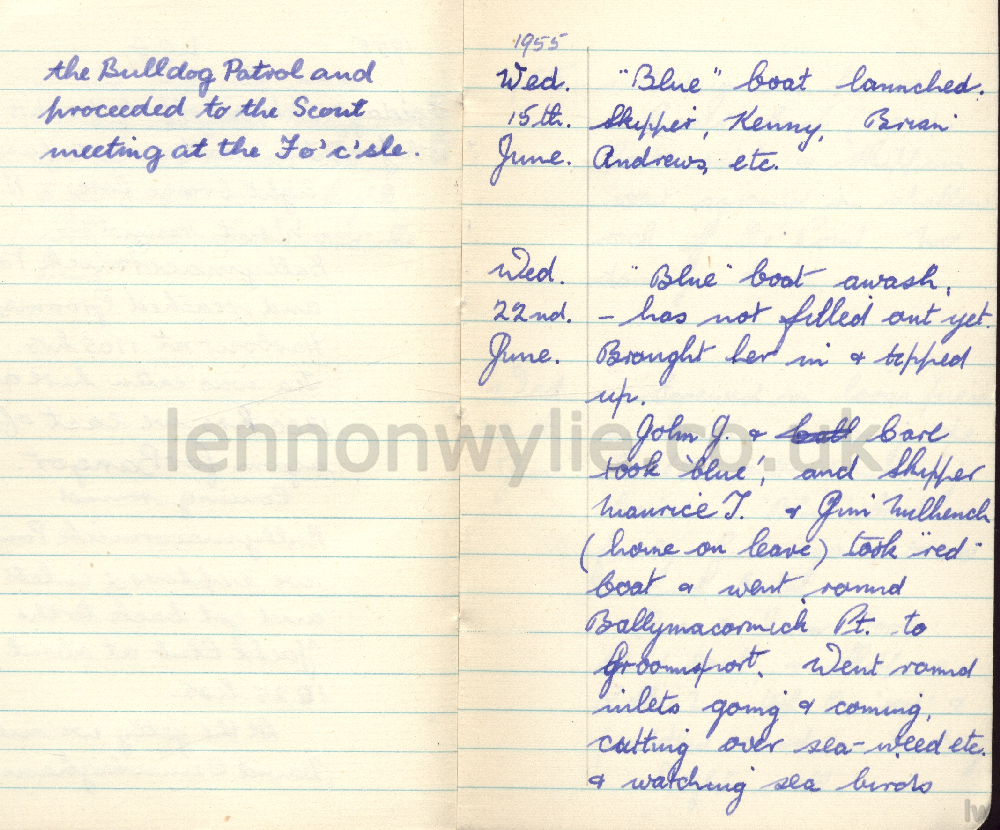 the Bulldog Patrol and
proceeded to the Scout
meeting at the Fo'c'sle.
1955
Wed. "Blue" boat launched.
15th. Skipper, Kenny, Brian
June. Andrews, etc.
Wed. "Blue" boat awash,
22nd. - has not filled out yet.
June. Brought her in & tipped
up.
John J. & Carl
took 'blue', and Skipper
Maurice T. & Jim
(home on leave) took "red"
boat & went round
Ballymacormick Pt. to
Groomsport. Went round
inlets going & coming,
cutting over sea-weed etc.
& watching sea birds
lennonwylie.co.uk
lw